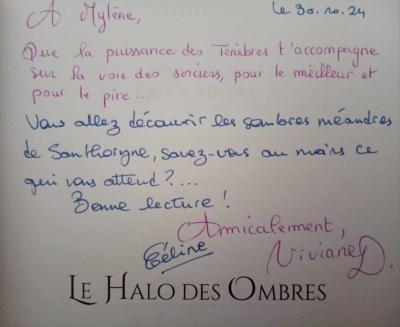 A Mylène,
le 30.10.24
Que la puissance des Ténèbres t'accompagne
sur la voie des sorciers, pour le meilleur et
pour le pire...
Vous allez découvrir les sombres méandres
de Santhorgne, savez-vous au moins ce
qui vous attend?...
Bonne lecture !
Amicalement,
Céline
Viviane D.
LE HALO DES OMBRES